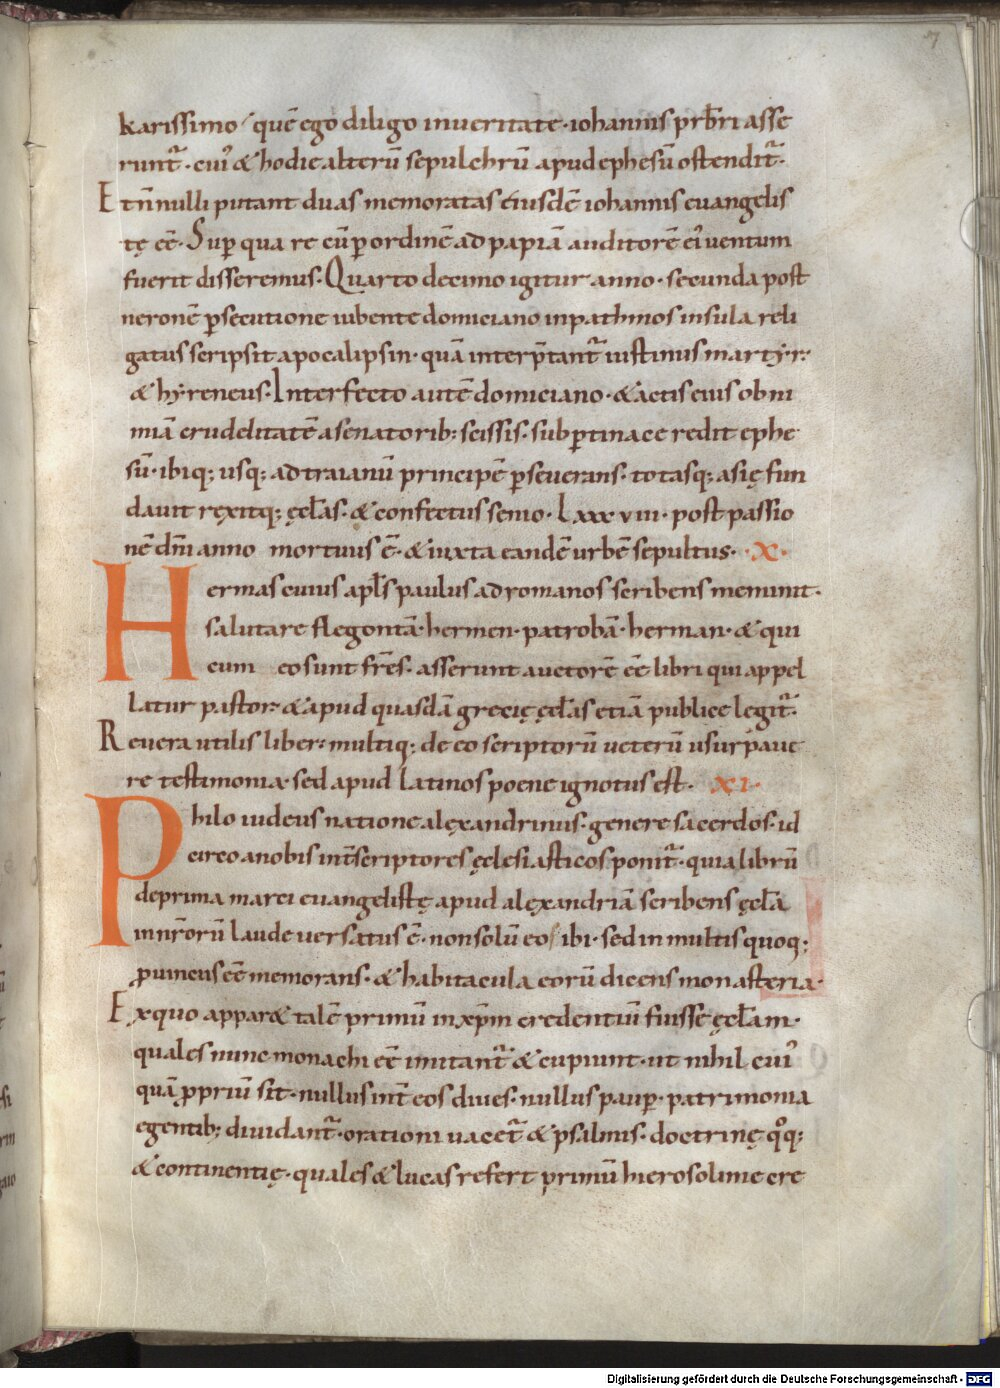 7
karissimo quē ego diligo in ueritate · iohannis prb̄ri asse
runt᷑ · cui᷒ & hodie alterū sepulchrū apud ephesū ostendit᷑ ·
Et n̄nulli putant duas memorias eiusdē iohannis euangelis
tę eē · Sup̱ qua re cū p̱ ordinē ad papiā auditorē ei᷒ uentum
fuerit disseremus · Quarto decimo igitur anno · secunda post
neronē p̱secutione iubente domiciano in pathmos insula reli
gatus scripsit apocalipsin · quā interp̄tant᷑ iustinus martyr ·
& hyreneus · Interfecto autē domiciano · & actis eius ob ni
miā crudelitatē a senatorib; scissis · sub p̱tinace redit ephe
sū · ibiq; usq; ad traianū principē p̱seuerans · totasq; asię fun
dauit rexitq; ęcl̄as · & confectus senio · Lxxxviii · post passio
nē dn̄i anno mortuus ē · & iuxta eandē urbē sepultus · X ·
Hermas cuius apl̄s paulus ad romanos scribens meminit ·
salutare flegontā · hermen · patrobā · herman · & qui
cum eo sunt fr̄es · asserunt auctorē eē libri qui appel
latur pastor · & apud quasdā grecię ęcl̄as etiā publice legit᷑ ·
Reuera utilis liber · multiq; de eo scriptorū ueterū usurpaue
re testimonia · sed apud latinos poene ignotus est · XI ·
Philo iudeus natione alexandrinus · genere sacerdos · id
circo a nobis int̄ scriptores ęclesiasticos ponit᷑ · quia librū
de prima marci euangelistę apud alexandriā scribens ęcl̄a
in nr̄orū laude uersatus ē · non solū eos ibi · sed in multis quoq;
ꝓuincus eē memorans · & habitacula eorū dicens monasteria ·
Ex quo appar& talē primū in xp̄m credentiū fuisse ęcl̄am ·
quales nunc monachi eē imitant᷑ & cupiunt · ut nihil cui᷒
quā ꝓprium sit · nullus int̄ eos diues · nullus paup̱ · patrimonia
egentib; diuidant᷑ · orationi uacet᷑ & psalmis · doctrinę qͦq;
& continentię · quales & lucas refert primū hierosolime cre
Digitalisierung gefördert durch die Deutsche Forschungsgemeinschaft - DFG